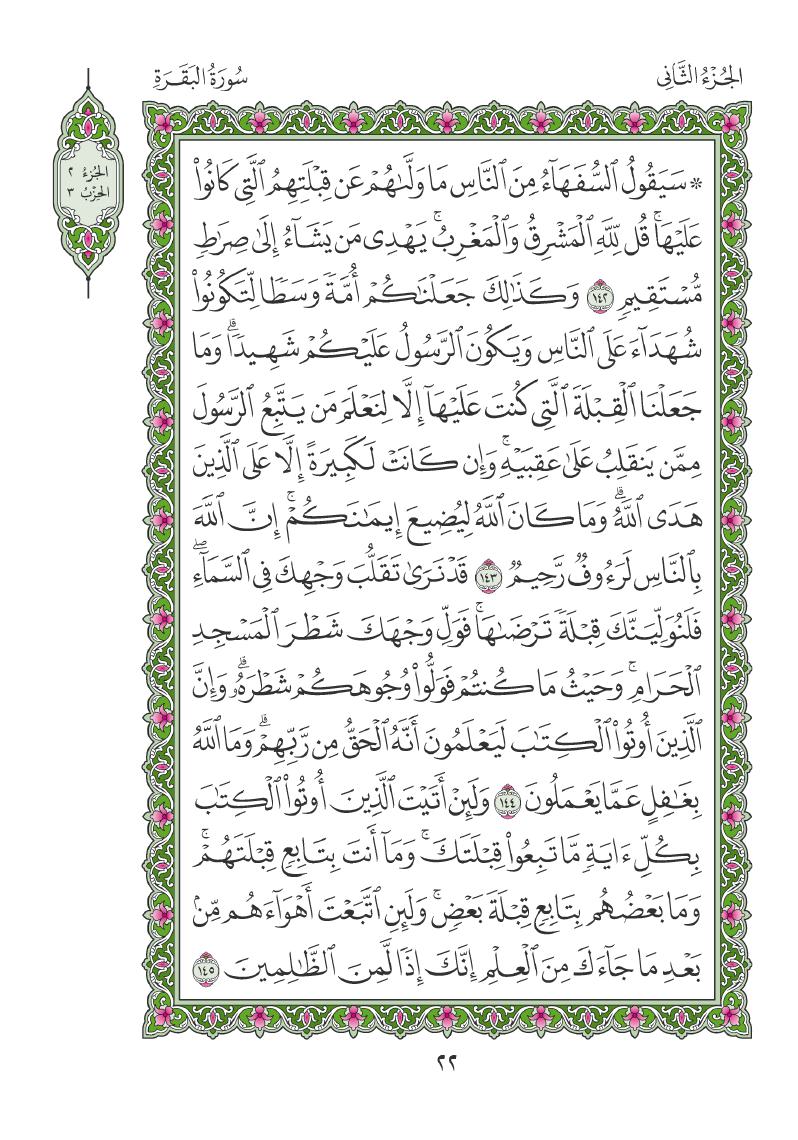 الجُزْءُ الثَّانِي
سُورَةُ البَقَرَةِ
الجزءُ ٢
الحِزْبُ ٣
۞ سَيَقُولُ ٱلسُّفَهَآءُ مِنَ ٱلنَّاسِ مَا وَلَّىٰهُمْ عَن قِبْلَتِهِمُ ٱلَّتِي كَانُوا۟
عَلَيْهَا ۚ قُل لِّلَّهِ ٱلْمَشْرِقُ وَٱلْمَغْرِبُ ۚ يَهْدِي مَن يَشَآءُ إِلَىٰ صِرَٰطٍ
مُّسْتَقِيمٍ ١٤٢ وَكَذَٰلِكَ جَعَلْنَٰكُمْ أُمَّةً وَسَطًا لِّتَكُونُوا۟
شُهَدَآءَ عَلَى ٱلنَّاسِ وَيَكُونَ ٱلرَّسُولُ عَلَيْكُمْ شَهِيدًا ۗ وَمَا
جَعَلْنَا ٱلْقِبْلَةَ ٱلَّتِي كُنتَ عَلَيْهَآ إِلَّا لِنَعْلَمَ مَن يَتَّبِعُ ٱلرَّسُولَ
مِمَّن يَنقَلِبُ عَلَىٰ عَقِبَيْهِ ۚ وَإِن كَانَتْ لَكَبِيرَةً إِلَّا عَلَى ٱلَّذِينَ
هَدَى ٱللَّهُ ۗ وَمَا كَانَ ٱللَّهُ لِيُضِيعَ إِيمَٰنَكُمْ ۚ إِنَّ ٱللَّهَ
بِٱلنَّاسِ لَرَءُوفٌ رَّحِيمٌ ١٤٣ قَدْ نَرَىٰ تَقَلُّبَ وَجْهِكَ فِي ٱلسَّمَآءِ ۖ
فَلَنُوَلِّيَنَّكَ قِبْلَةً تَرْضَىٰهَا ۚ فَوَلِّ وَجْهَكَ شَطْرَ ٱلْمَسْجِدِ
ٱلْحَرَامِ ۚ وَحَيْثُ مَا كُنتُمْ فَوَلُّوا۟ وُجُوهَكُمْ شَطْرَهُۥ ۗ وَإِنَّ
ٱلَّذِينَ أُوتُوا۟ ٱلْكِتَٰبَ لَيَعْلَمُونَ أَنَّهُ ٱلْحَقُّ مِن رَّبِّهِمْ ۗ وَمَا ٱللَّهُ
بِغَٰفِلٍ عَمَّا يَعْمَلُونَ ١٤٤ وَلَئِنْ أَتَيْتَ ٱلَّذِينَ أُوتُوا۟ ٱلْكِتَٰبَ
بِكُلِّ ءَايَةٍ مَّا تَبِعُوا۟ قِبْلَتَكَ ۚ وَمَآ أَنتَ بِتَابِعٍ قِبْلَتَهُمْ ۚ
وَمَا بَعْضُهُم بِتَابِعٍ قِبْلَةَ بَعْضٍ ۚ وَلَئِنِ ٱتَّبَعْتَ أَهْوَآءَهُم مِّنۢ
بَعْدِ مَا جَآءَكَ مِنَ ٱلْعِلْمِ إِنَّكَ إِذًا لَّمِنَ ٱلظَّٰلِمِينَ ١٤٥
٢٢